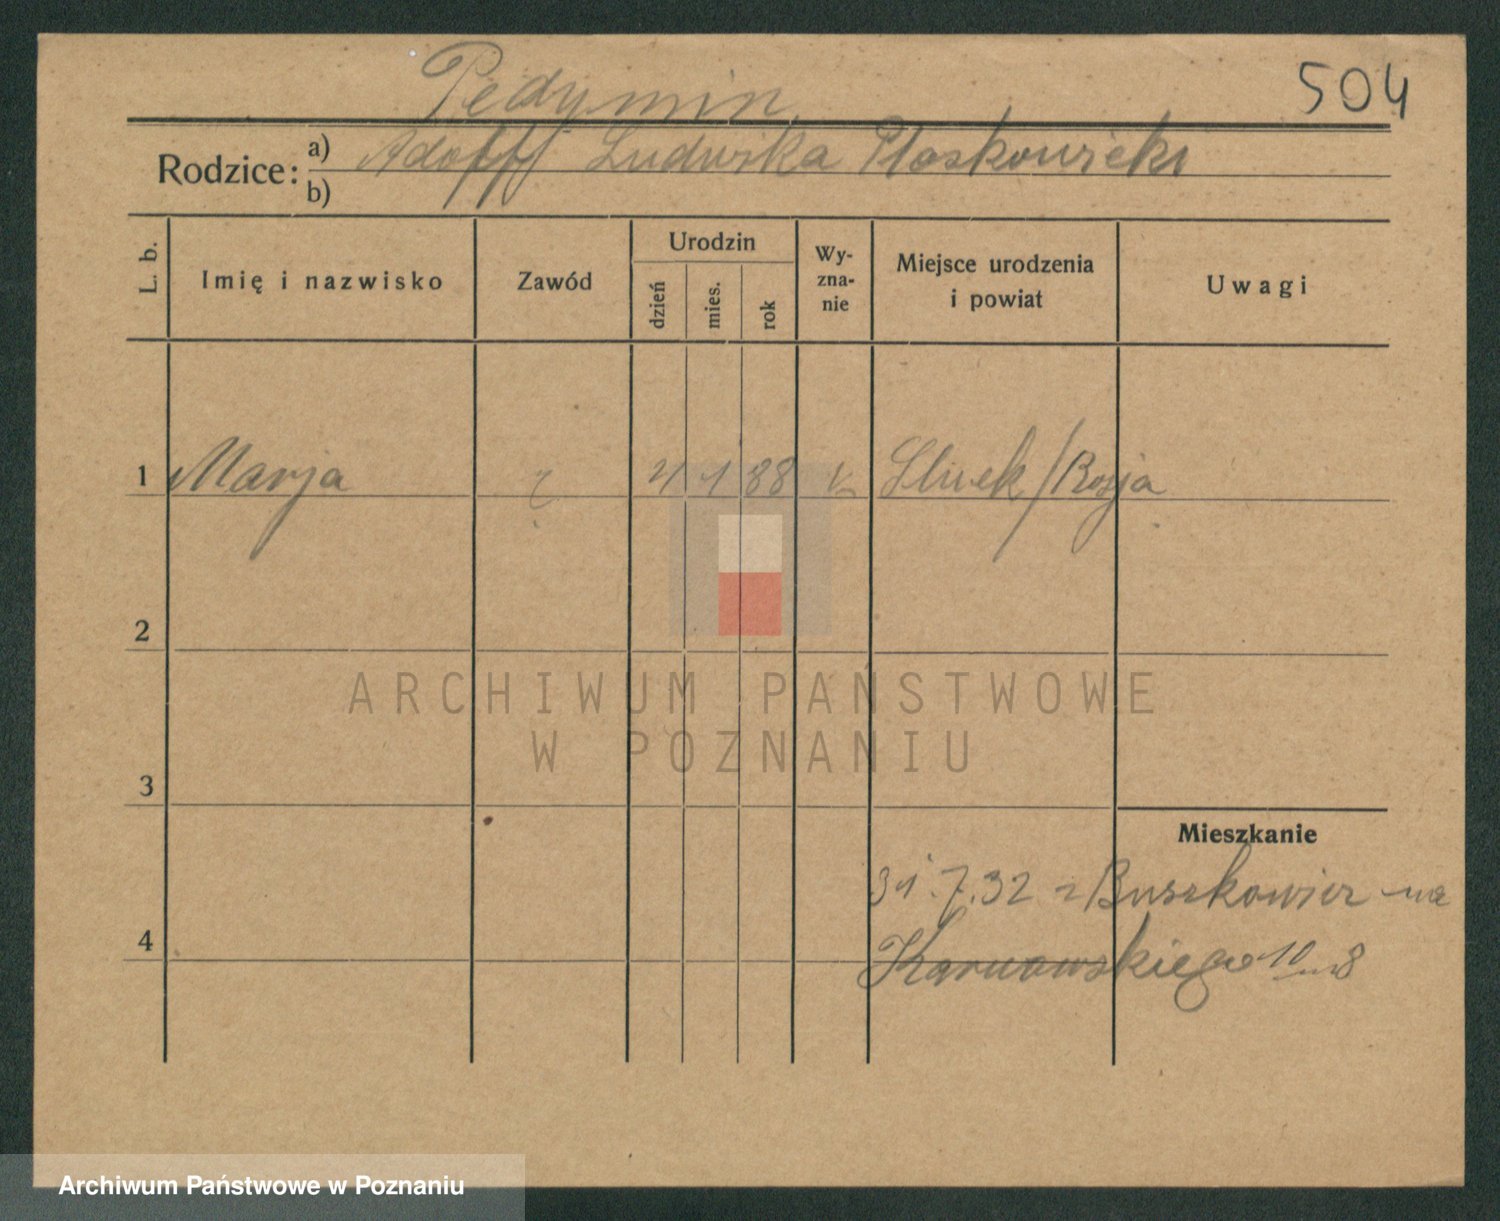 Pedymin
504
Rodzice: a) Adolff Ludwika Płaskowicki
b)
L. b. Imię i nazwisko Zawód Urodzin dzień mies. rok Wyznanie Miejsce urodzenia i powiat Uwagi
1 Marja 1 88 /Rosja
2
3
4
Mieszkanie
31.7.32 z na
10 m 8
ARCHIWUM PAŃSTWOWE
W POZNANIU
Archiwum Państwowe w Poznaniu